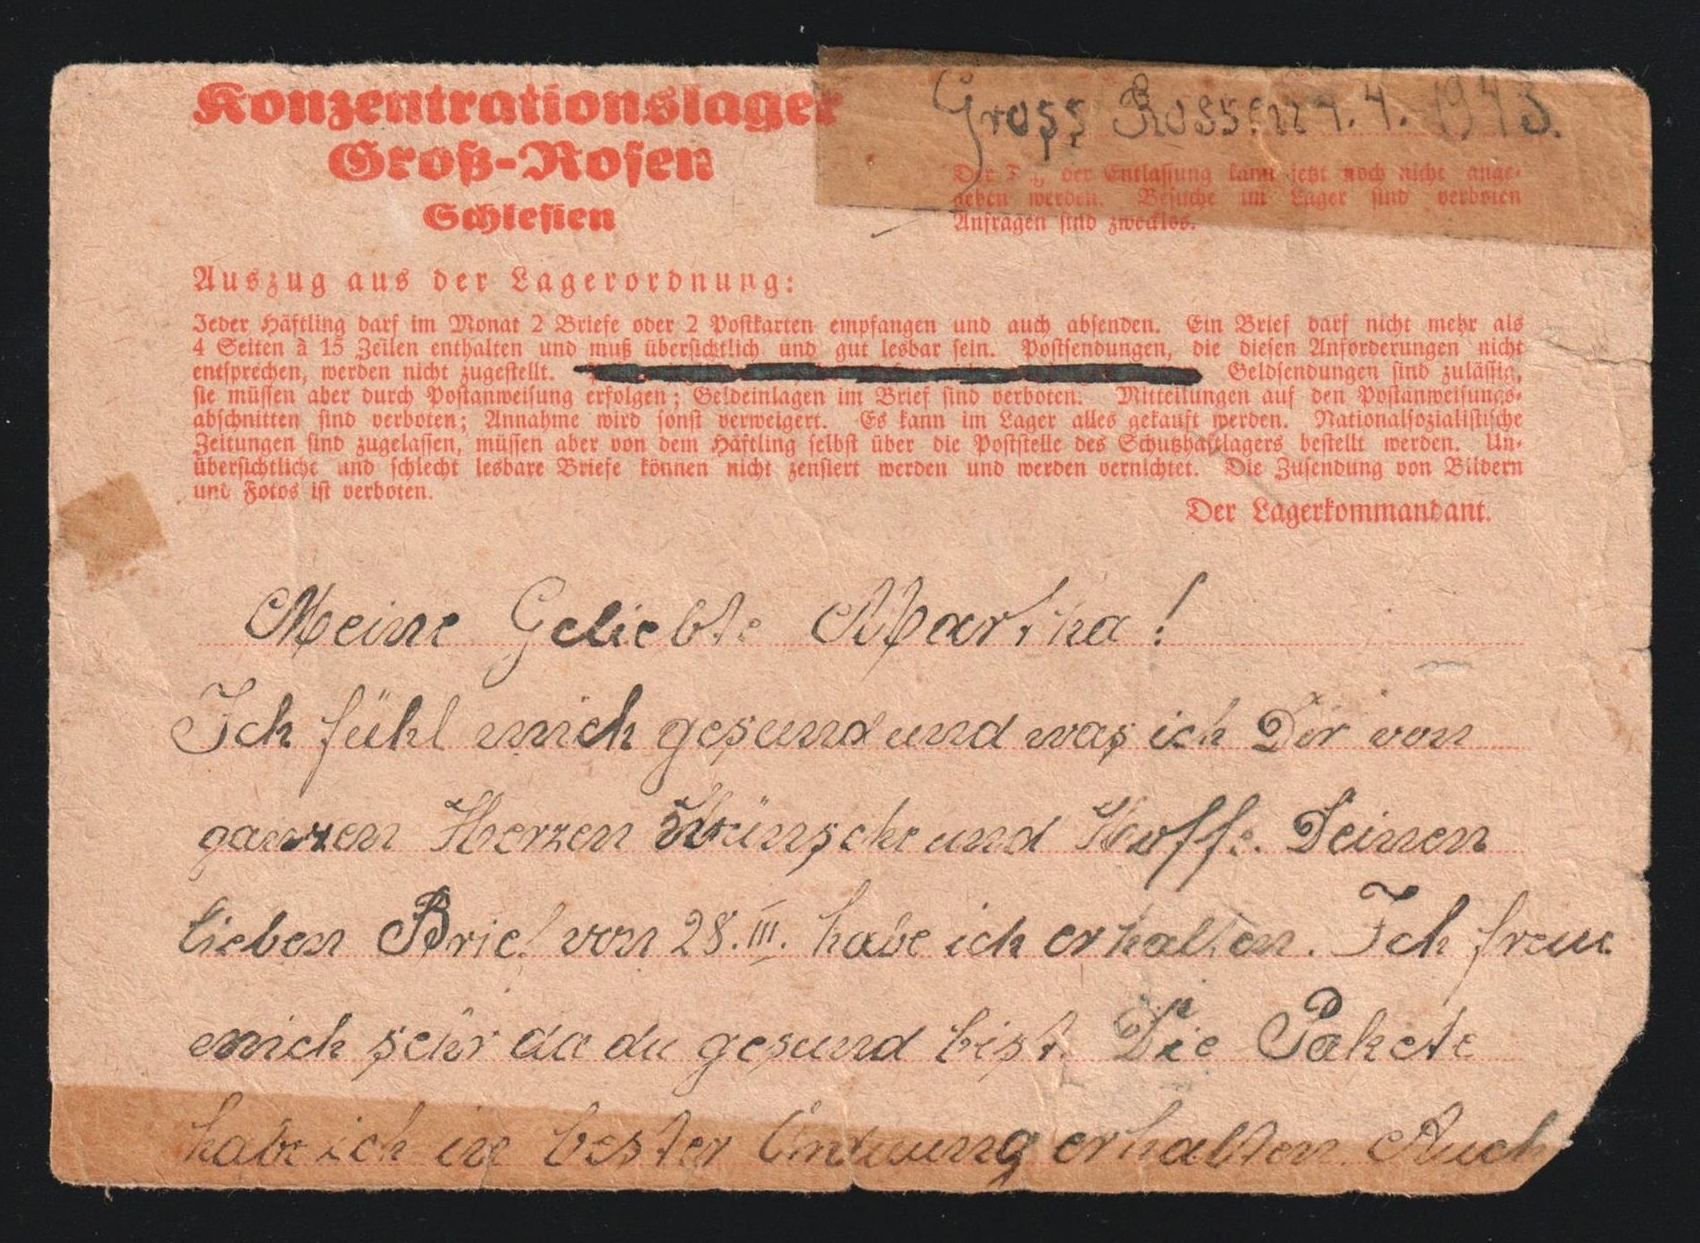 Konzentrationslager
Groß-Rosen
Schlesien
Gross Rossen 4. 4. 1943.
Der Tag der Entlassung kann jetzt noch nicht ange-
geben werden. Besuche im Lager sind verboten
Anfragen sind zwecklos.
Auszug aus der Lagerordnung:
Jeder Häftling darf im Monat 2 Briefe oder 2 Postkarten empfangen und auch absenden. Ein Brief darf nicht mehr als
4 Seiten à 15 Zeilen enthalten und muß übersichtlich und gut lesbar sein. Postsendungen, die diesen Anforderungen nicht
entsprechen, werden nicht zugestellt. Geldsendungen sind zulässig,
sie müssen aber durch Postanweisung erfolgen; Geldeinlagen im Brief sind verboten. Mitteilungen auf den Postanweisungs-
abschnitten sind verboten; Annahme wird sonst verweigert. Es kann im Lager alles gekauft werden. Nationalsozialistische
Zeitungen sind zugelassen, müssen aber von dem Häftling selbst über die Poststelle des Schutzhaftlagers bestellt werden. Un-
übersichtliche und schlecht lesbare Briefe können nicht zensiert werden und werden vernichtet. Die Zusendung von Bildern
und Fotos ist verboten.
Der Lagerkommandant.
Meine Geliebte Martha!
Ich fühl mich gesund und was ich Dir von
ganzen Herzen Wünsche und Hoffe. Deinen
lieben Brief von 28. III. habe ich erhalten. Ich freue
mich sehr da du gesund bist. Die Pakete
habe ich in bester erhalten. Auch